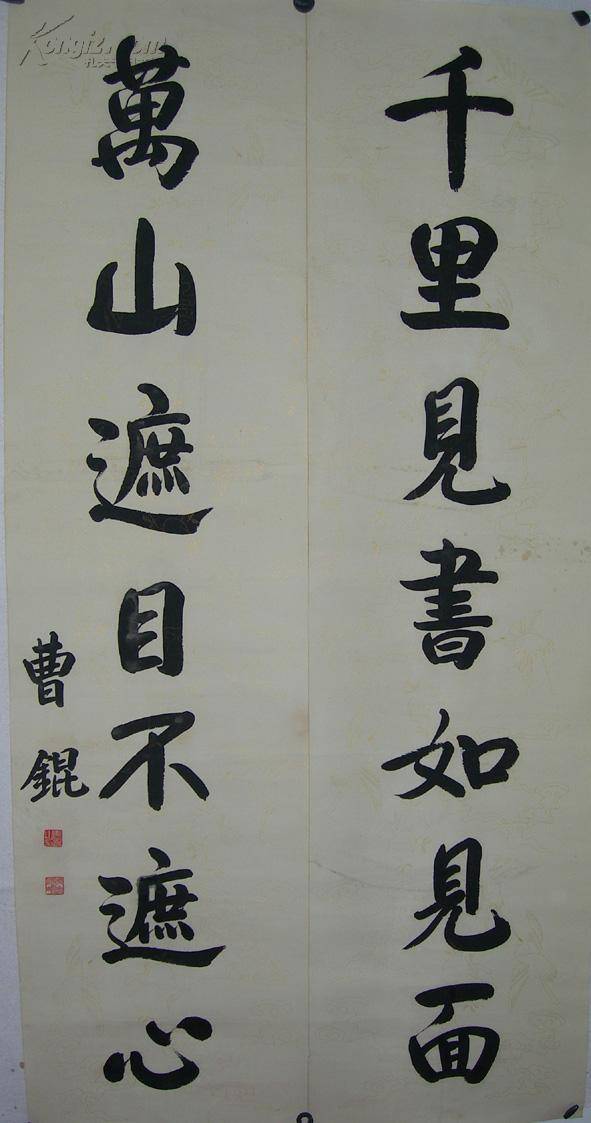 千里見書如見面
萬山遮目不遮心
曹錕
Kongfz.com